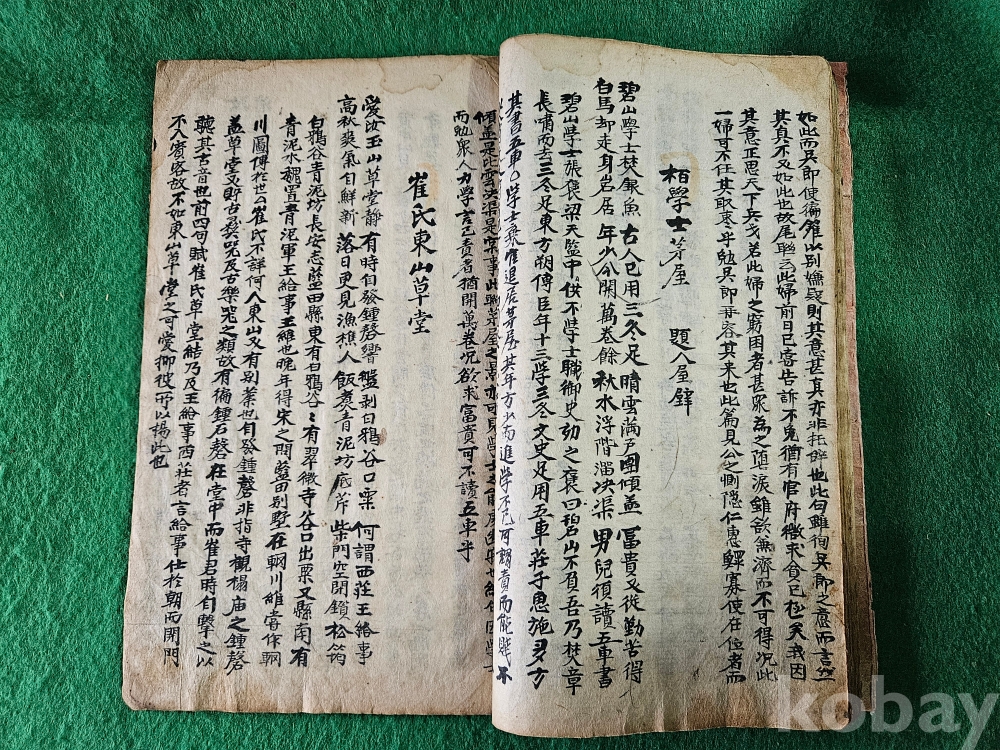 如此而吳郎使徧籬以別嫌疑則其意甚真亦非托辞也此句雖徇吳郎之
其真不又如此也故尾聯云此婦前日已寄告訴不免猶有官府徵求貪已極矣我因
其意正思天下兵戈若此婦之窮困者甚眾為之墮淚雖欲無濟而不可得况此
一婦可不任其取枣乎勉吳郎其來也此篇見公之惻隱仁惠鰥寡使在位者而
柏學士茅屋 題人屋鐸
碧山學士焚銀魚 古人已用三冬足 晴雲滿戶團傾盖 冨貴又從勤苦得
白馬却走身岩居 年少今開萬卷餘 秋水浮階溜决渠 男兒須讀五車書
碧山學士張褒梁天監中供不學士職御史劾之褒曰碧山不負吾乃焚章
長嘯而去三冬足東方朔傳臣年十三學三冬文史足用五車莊子惠施多方
其書五車〇學士棄官退居茅屋其年方少而進學不已可謂貴而能賤不
而勉眾人力學言已貴者猶開萬卷况欲求富貴可不讀五車乎
崔氏東山草堂
愛汝玉山草堂靜 有時自發鍾磬響 盤剥白鴉谷口栗 何謂西莊王給事
高秋爽氣自鮮新 落日更見漁樵人 飯煮青泥坊底芹 柴門空閉鎖松筠
白鴉谷青泥坊長安志藍田縣東有白鴉谷〻有翠微寺谷口出栗又縣南有
青泥水魏置青泥軍王給事王維也晚年得宋之問藍田別墅在輞川維嘗作輞
川圖傳於世么崔氏不詳何人東山又有别業也自發鍾磬非指寺觀楊庙之鍾磬
盖草堂又貯古彜咒及古樂咒之類故有徧鍾石磬在堂中而崔君時自擊之以
聽其古音也前四句賦崔氏草堂結乃及王給事西莊者言給事仕於朝而開門
不入賓客故不如東山草堂之可愛抑彼所以揚此也